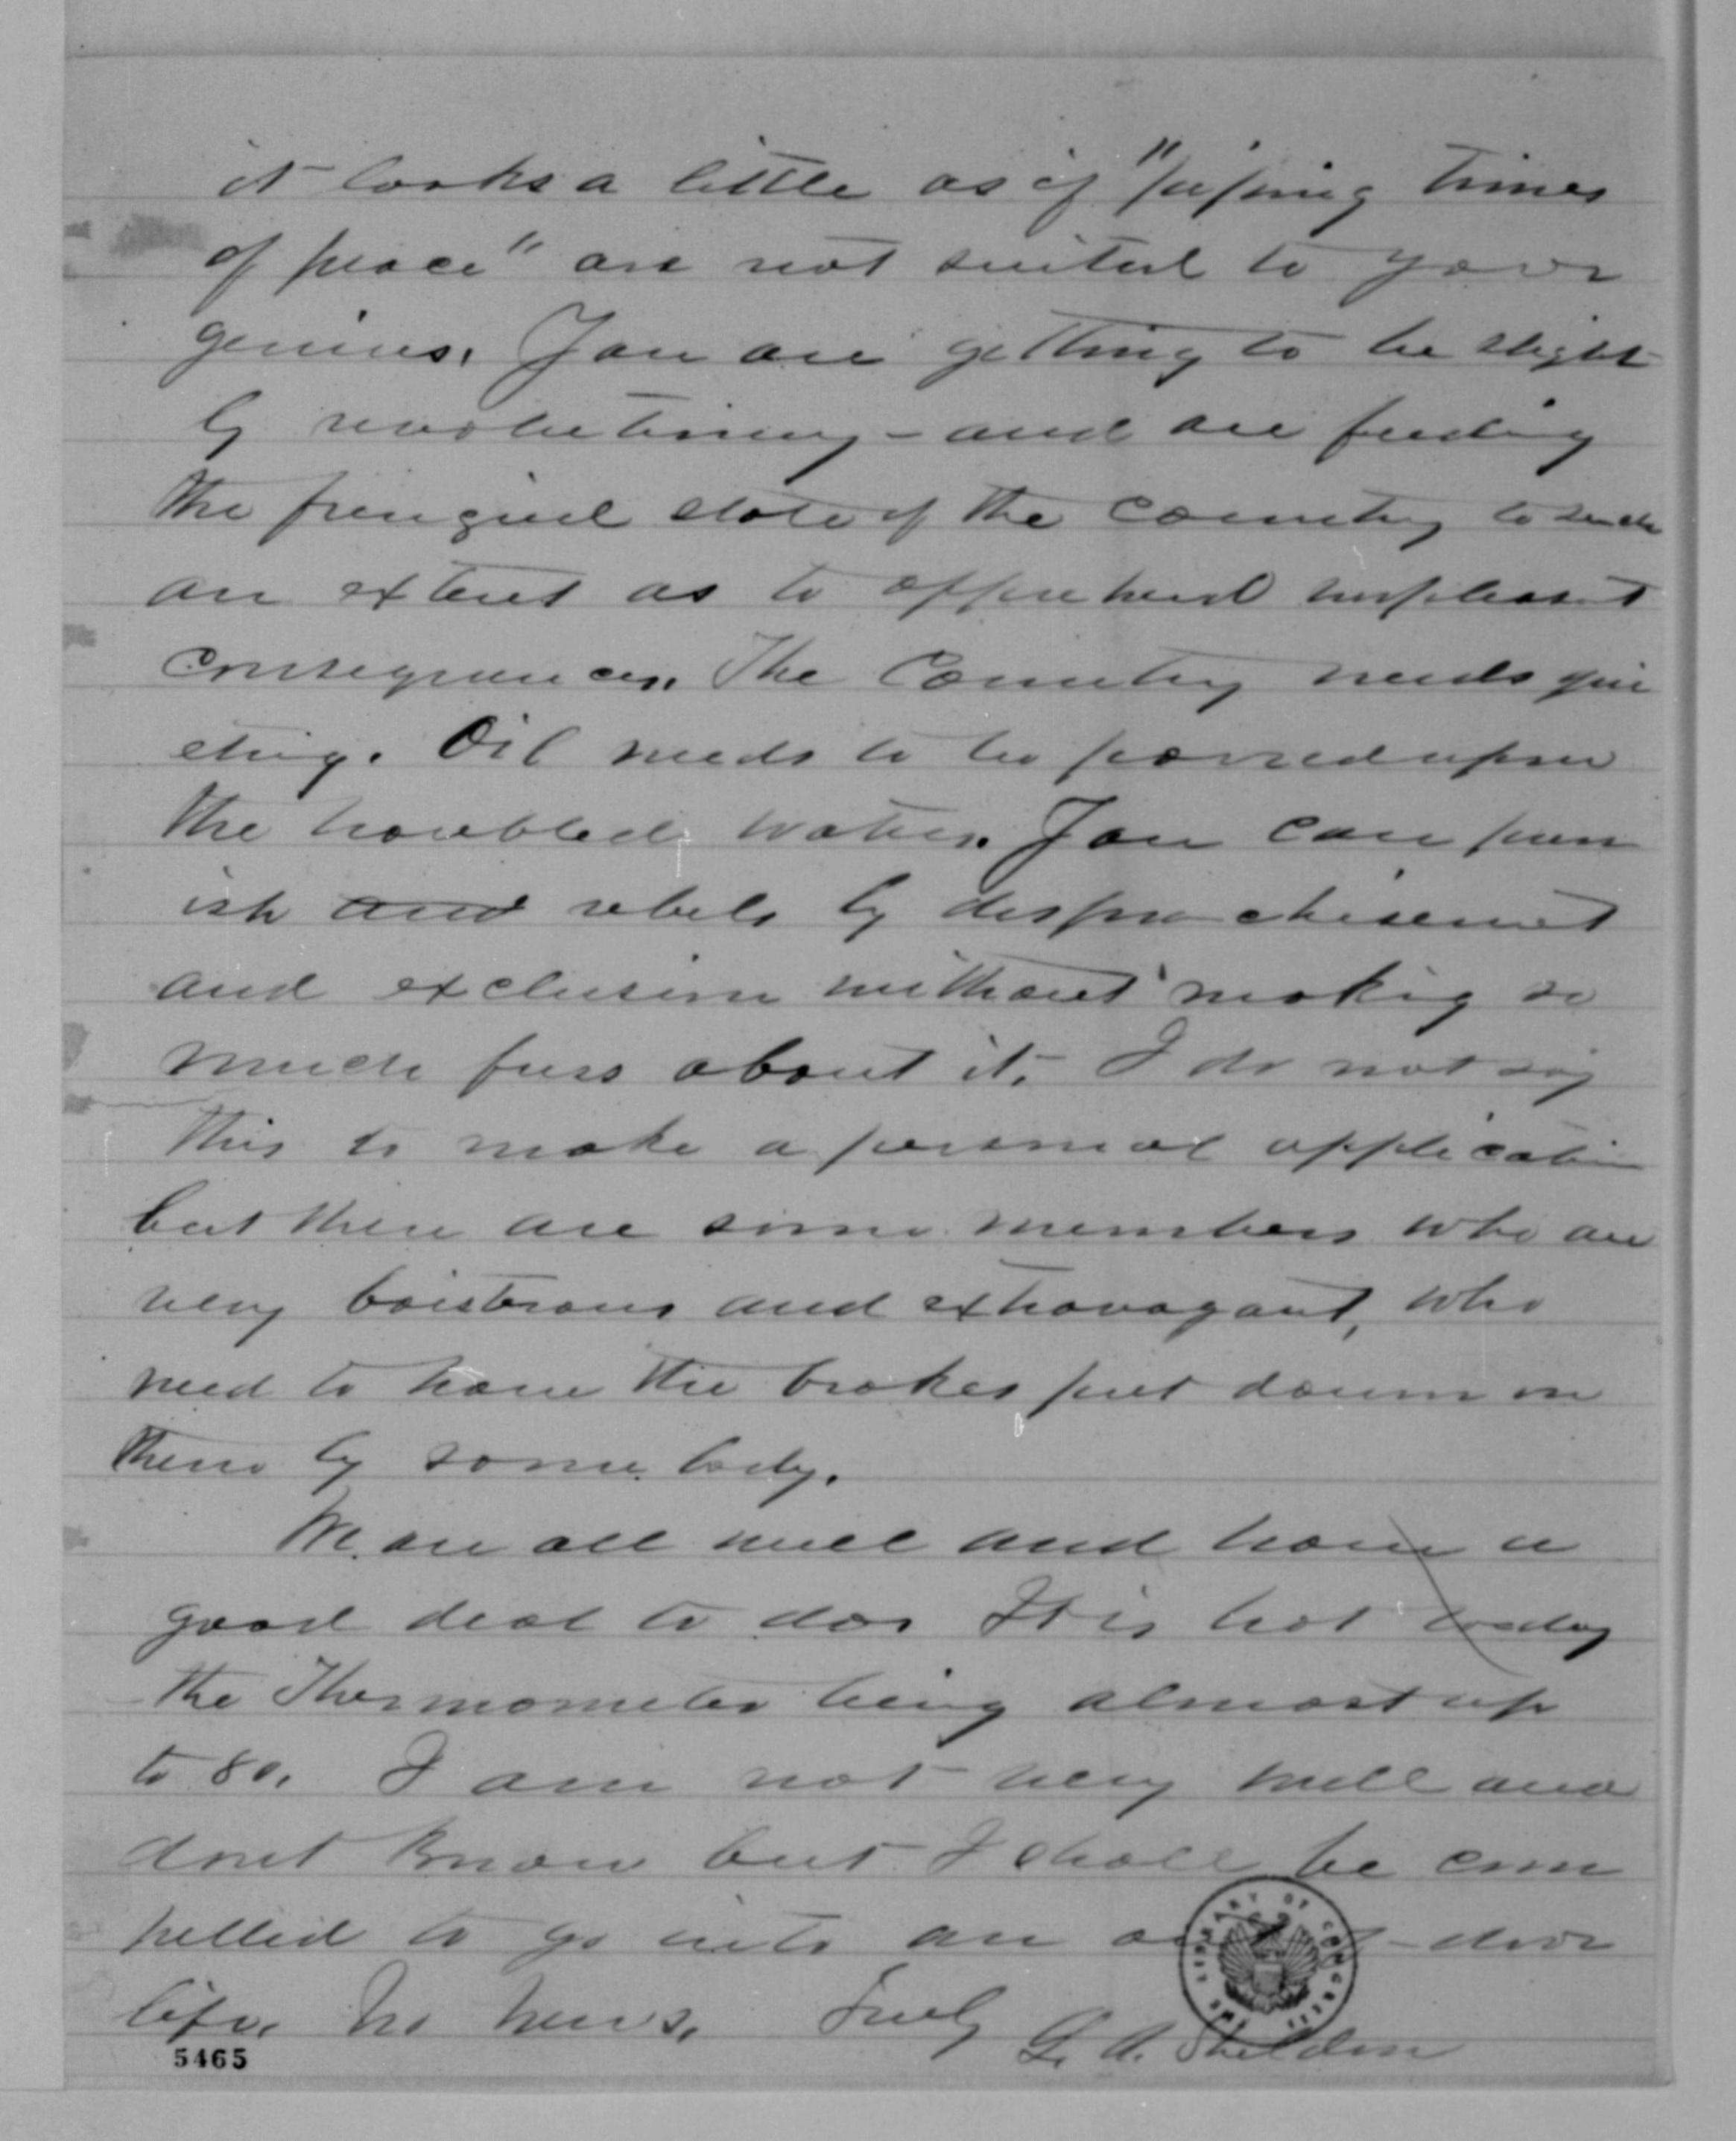 it looks a little as if "piping times
of peace" are not suited to your
genius. You are getting to be slight
ly revolutionary - and are feeding
the state of the country to such
an extent as to apprehend unpleasant
consequences. The Country needs qui
eting. Oil needs to be poured upon
the troubled waters. You can pun
ish and rebels by disfranchisement
and exclusion without making so
much fuss about it. I do not say
this to make a personal application
but there are some members who are
very boisterous and extravagant, who
need to have the brakes put down on
them by some body.
We are all well and have a
good deal to do. It is hot today
the Thermometer being almost up
to 80. I am not very well and
dont know but I shall be com
pelled to go into an out-door
life. No news. Truly
L. A. Sheldon
THE LIBRARY OF CONGRESS
5465